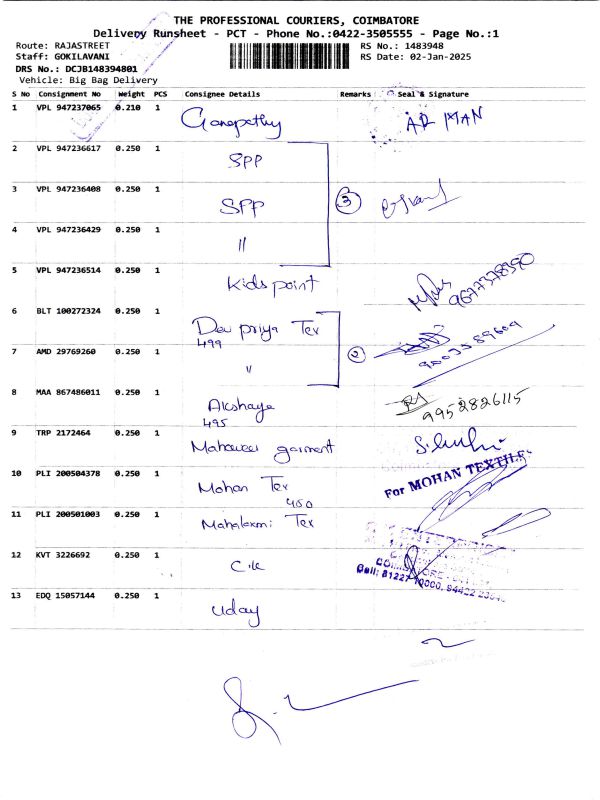 THE PROFESSIONAL COURIERS, COIMBATORE
Delivery Runsheet - PCT - Phone No.:0422-3505555 - Page No.:1
Route: RAJASTREET RS No.: 1483948
Staff: GOKILAVANI RS Date: 02-Jan-2025
DRS No.: DCJB148394801
Vehicle: Big Bag Delivery
S No Consignment No Weight PCS Consignee Details Remarks Seal & Signature
1 VPL 947237065 0.210 1 Ganapathy AR MAN
2 VPL 947236617 0.250 1 SPP
3 VPL 947236408 0.250 1 SPP 3
4 VPL 946236429 0.250 1 "
5 VPL 947236514 0.250 1 Kids point 9677378390
6 BLT 100272324 0.250 1 Devi priya Tex
499
7 AMD 29769260 0.250 1 " 2
8 MAA 867486011 0.250 1 Akshaya 9952826115
495
9 TRP 2172464 0.250 1 Mahaveer garment
10 PLI 200504378 0.250 1 Mohan Tex For MOHAN TEXTILE
450
11 PLI 200501003 0.250 1 Mahalaxmi Tex
12 KVT 3226692 0.250 1 C.K
13 EDQ 15057144 0.250 1 Uday